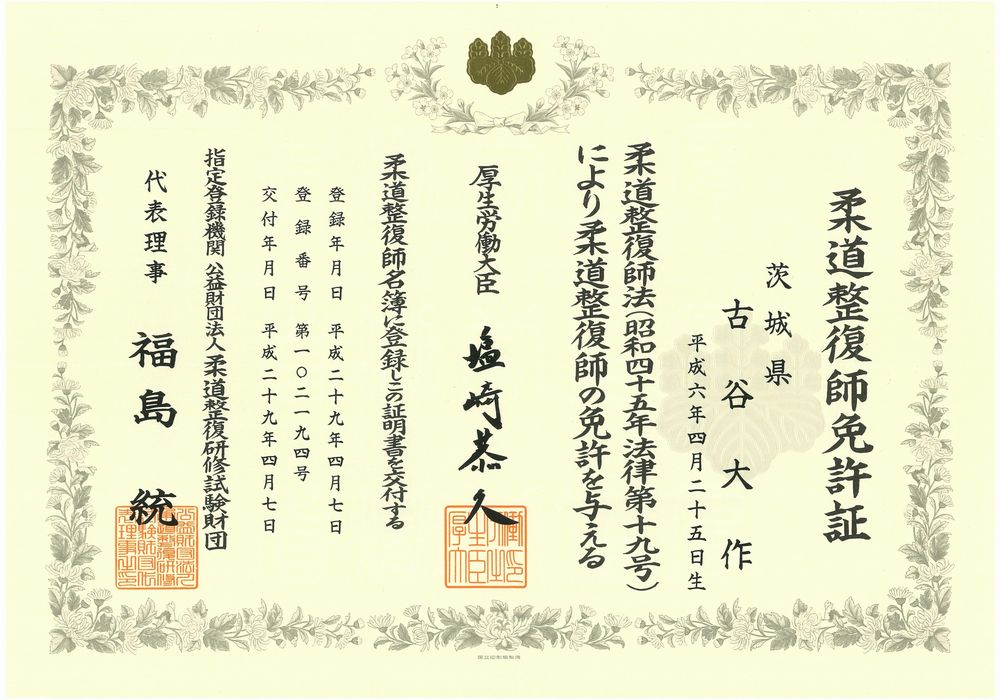 柔道整復師免許証
茨城県
古谷大作
平成六年四月二十五日生
柔道整復師法(昭和四十五年法律第十九号)
により柔道整復師の免許を与える
厚生労働大臣 塩崎恭久
柔道整復師名簿に登録しこの証明書を交付する
登録年月日 平成二十九年四月七日
登録番号 第一〇二一九四号
交付年月日 平成二十九年四月七日
指定登録機関 公益財団法人 柔道整復研修試験財団
代表理事 福島統
国立印刷局製造